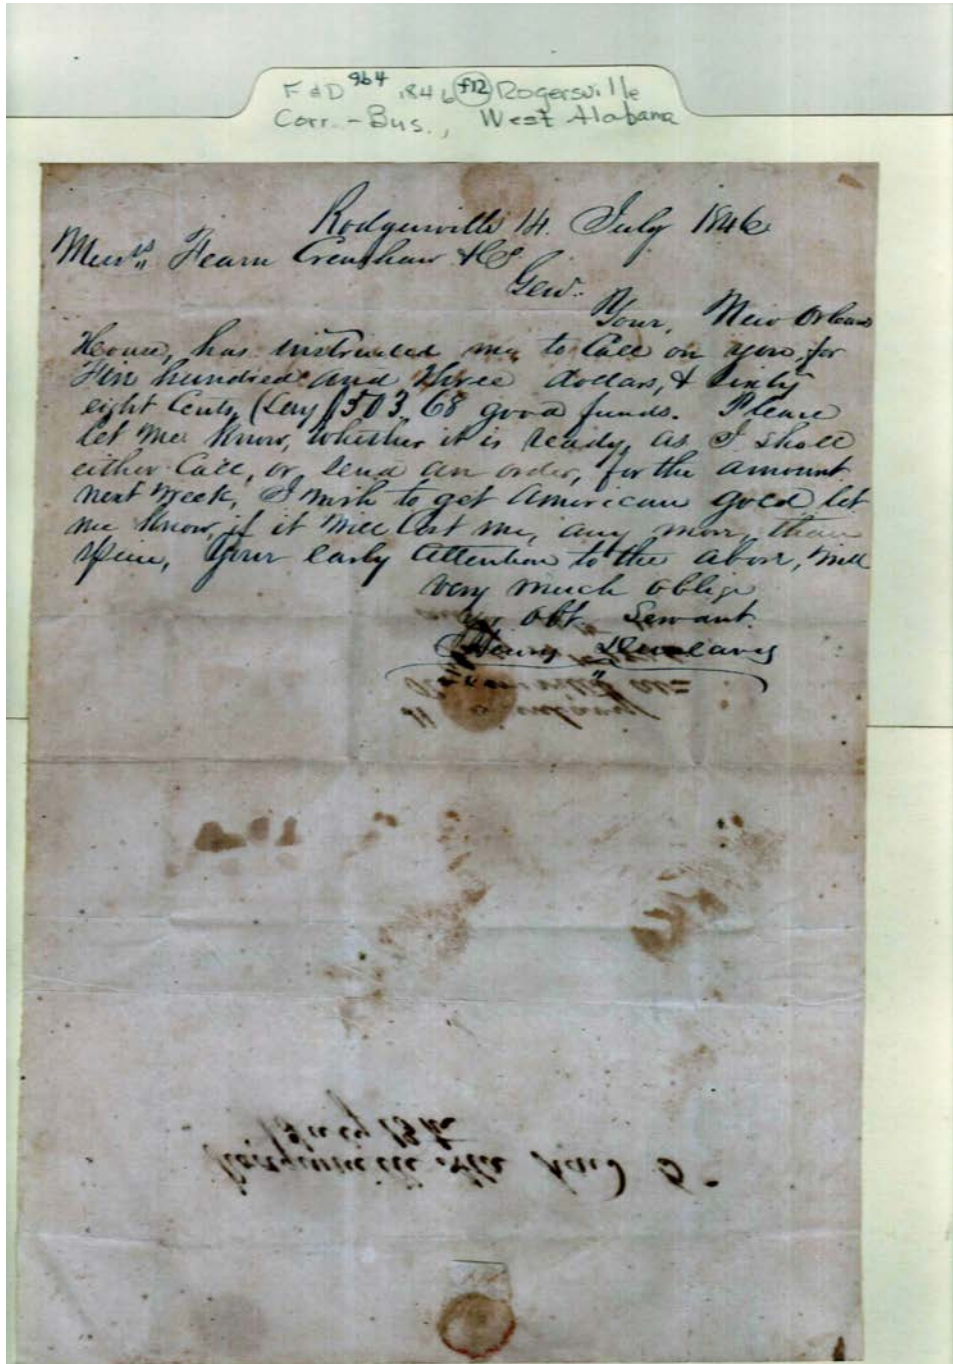 F&D 964 1846 f12 Rogersville
Corr.-Bus., West Alabama
Rodgersville 14. July 1846
Messrs Fearn Crenshaw & Co
Gen.
Your, New Orleans
House, has instructed me, to Call on you, for
five hundred and three dollars, & Sixty
eight Cents, (say $503.68 good funds. Please
let me know, whether it is ready, as I shall
either Call, or, send an order, for the amount
next week, I wish to get American gold let
me know, if it will Cost me, any more, than
your early attention to the above, will
very much oblige
Yr Obt. Servant.
Henry
July 13th